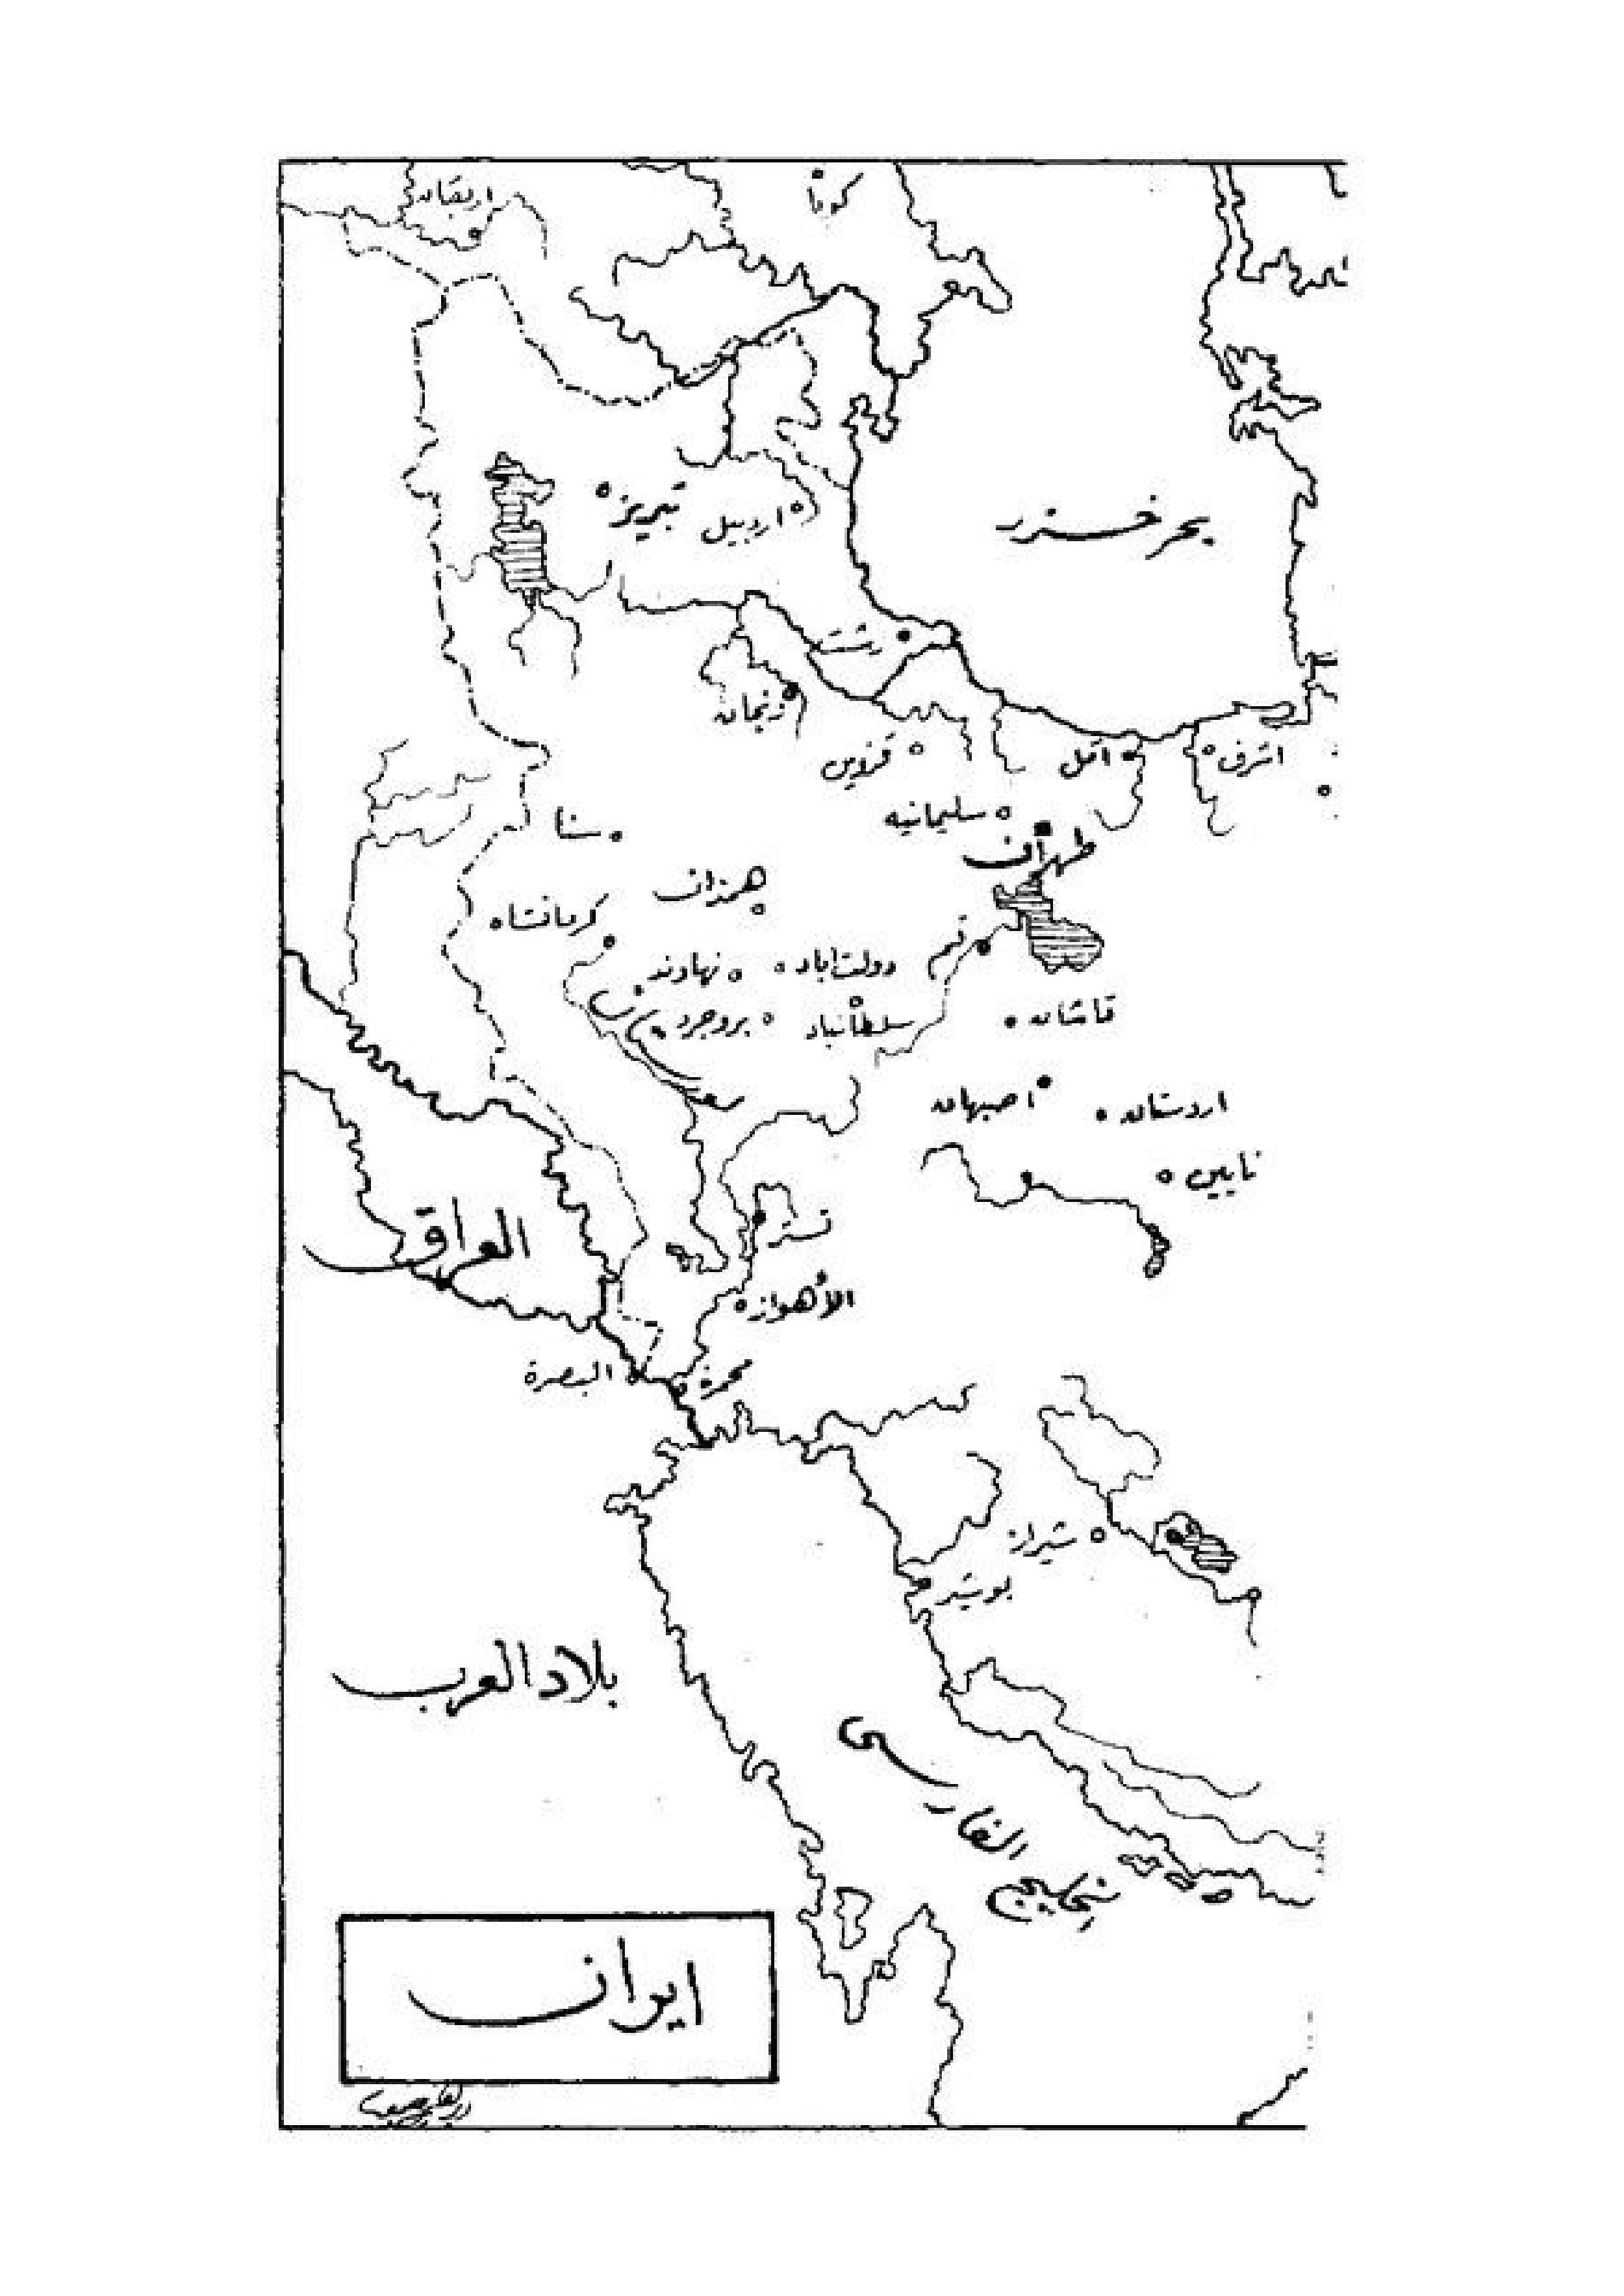 بحر خزر
تبريز
اردبيل
رشت
زنجان
قزوين
آمل
اشرف
سليمانيه
طهران
سنا
همذان
كرمانشاه
قم
دولت‌اباد
نهاوند
قاشان
سلطانباد
بروجرد
اصبهان
اردستان
نايين
العراق
تستر
الأهواز
محمرة
البصرة
شيراز
بوشهر
بلاد العرب
الخليج الفارسى
ايران